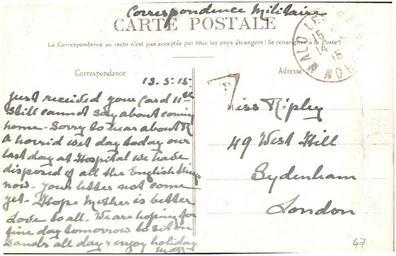 Correspondence Militaire
CARTE POSTALE
La Correspondance au recto n'est pas acceptée par tous les pays étrangers (Se renseigner à la Poste)
Correspondance
Adresse
13.5.15
Just received your card 11th
Still cannot say about coming
home. Sorry to hear about
A horrid wet day today our
last day at Hospital we have
disposed of all the English things
now. Your letter not come
yet. Hope Mother is better
Love to all. We are hoping for
fine day tomorrow to sit on
Sands all day & enjoy holiday
Miss Ripley
49 West Hill
Sydenham
London
T
MALO LES
NORD
15
14
15
47